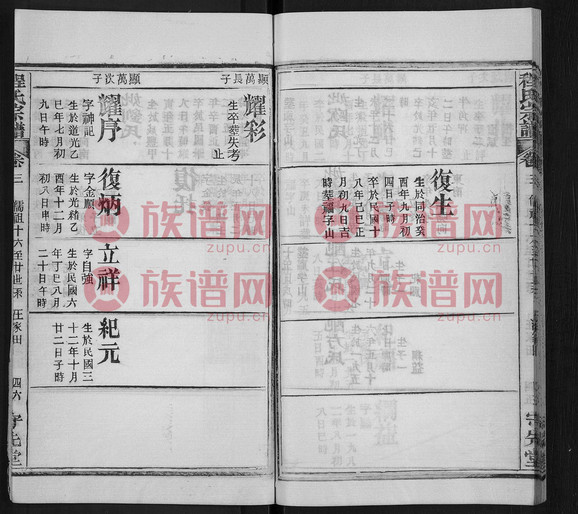 程氏宗譜
卷三
復生
生於同治癸
酉年九月初
卒於民國十
八年己巳正
月初九日吉
時葬顧子山
顯萬長子
耀彩
生卒葬失考
止
顯萬次子
耀序
字神記
生於道光乙
巳年七月初
九日午時
復炳
字金順
生於光緒乙
酉年十二月
初八日申時
立祥
字自強
生於民國六
年丁巳八月
二十日午時
紀元
生於民國三
十二年十月
廿二日子時
程氏宗譜
卷三
儒祖十六至廿世系
汪家田
四六
守先堂
族谱网
zupu.cn
族谱网
zupu.cn